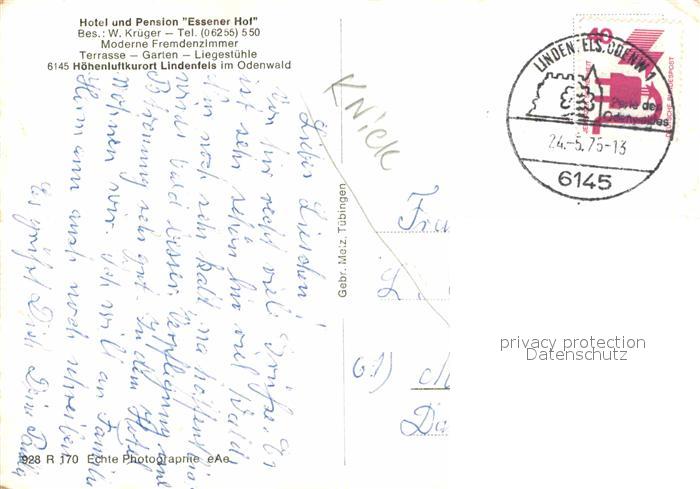 Hotel und Pension "Essener Hof"
Bes.: W. Krüger — Tel. (06255) 550
Moderne Fremdenzimmer
Terrasse — Garten — Liegestühle
6145 Höhenluftkurort Lindenfels im Odenwald
Knick
Liebes Lieschen!
Von hier recht viel Grüße. Es
ist sehr schön hier viel Wald,
nur noch sehr kalt na hoffentlich
wird bald besser. Verpflegung und
Betreuung sehr gut. In dem Hotel
wohnen wir. Ich will an Familie
Hermann auch noch schreiben
Es grüßt Dich Deine
Gebr. Metz, Tübingen
928 R 170 Echte Photographie eAe
LINDENFELS, ODENW 1
Perle des
Odenwaldes
24.-5.75-13
6145
40
DEUTSCHE BUNDESPOST
privacy protection
Datenschutz
61)